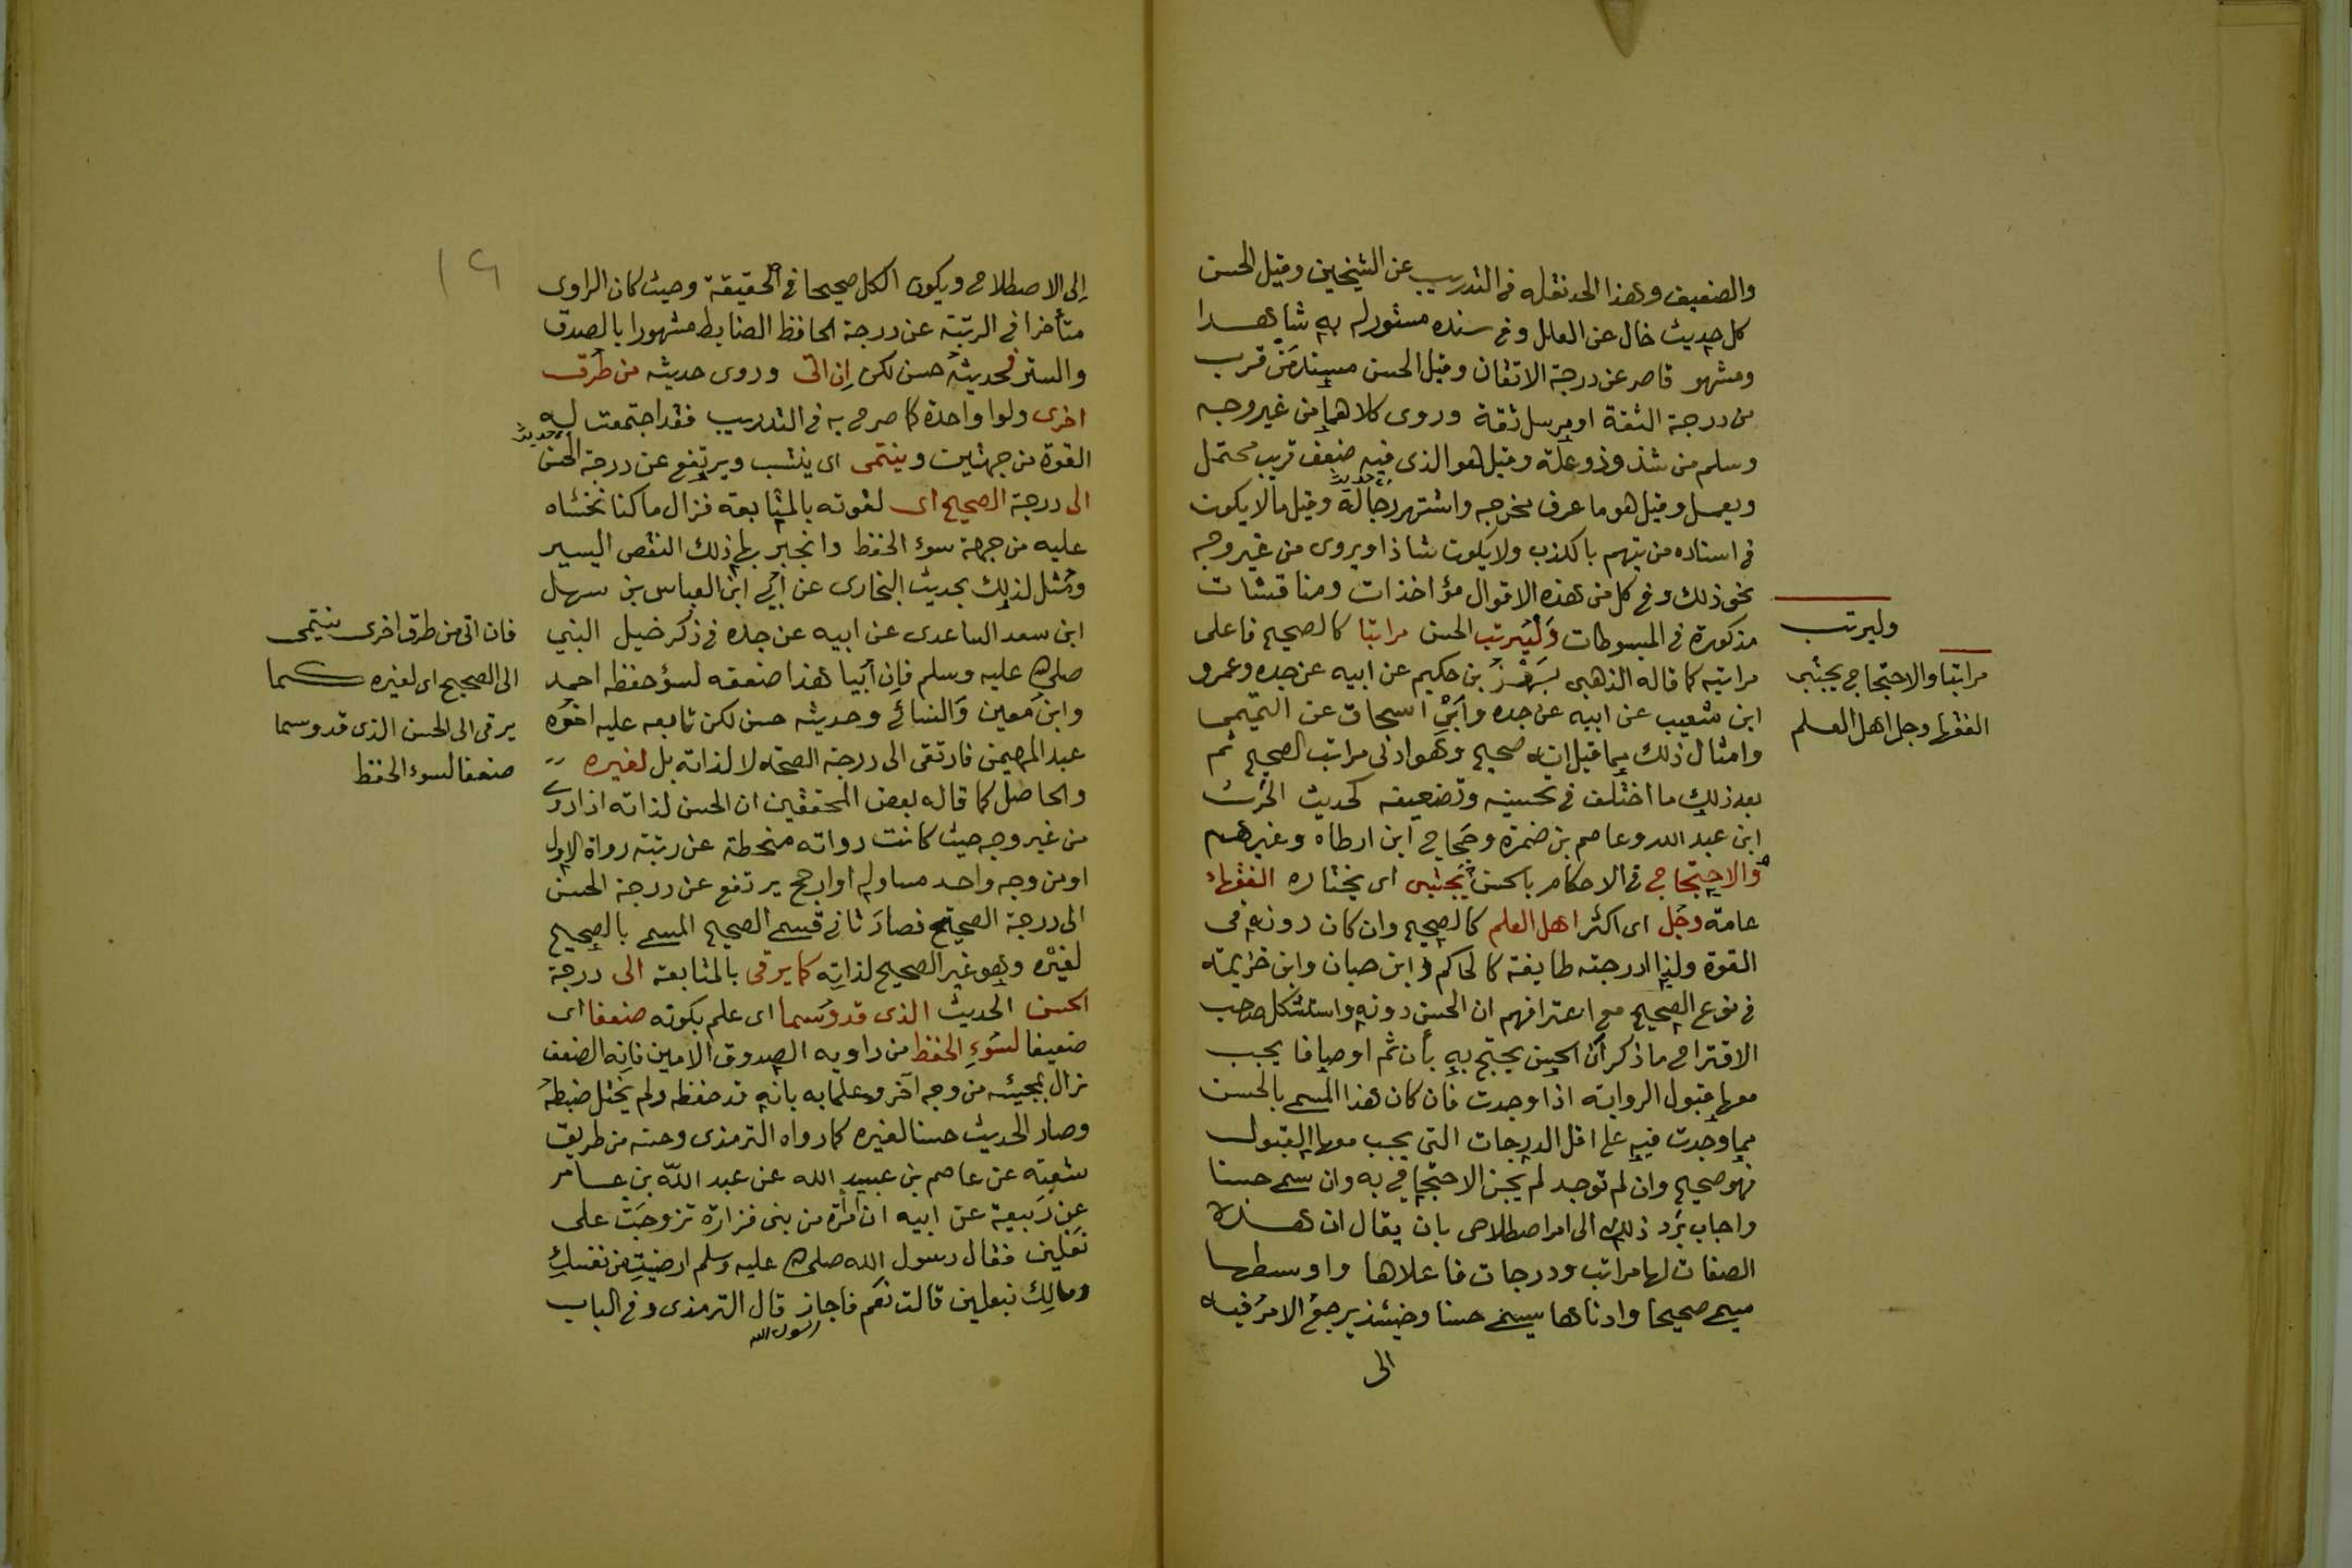 والضعيف وهذا الحد نقله في التدريب عن الشيخين وقيل الحسن
كل حديث خال عن العلل وفي سنده مستور له به شاهدا
ومشهور قاصر عن درجة الاتقان وقيل الحسن مسند من قرب
من درجة الثقة او مرسل ثقة وروى كلاهما من غير وجه
وسلم من شذوذ وعلة وقيل هو الذى فيه ضعف قريب محتمل
ويعمل وقيل هو ما عرف مخرجه واشتهر رجاله وقيل ما لا يكون
في اسناده من يتهم بالكذب ولا يكون شاذا ويروى من غير وجه
نحو ذلك وفي كل من هذه الاقوال مؤاخذات ومناقشات
مذكورة في المبسوطات وَلْيُرتب الحسن مراتبا كالصحيح فاعلى
مراتبه كما قاله الذهبى بَهْزُ بن حكيم عن ابيه عن جده وعمرو
ابن شعيب عن ابيه عن جده وابْنِ اسحاق عن التيمي
وامثال ذلك مما قيل انه صحيح وهو ادنى مراتب الصحيح ثم
بعد ذلك ما اختلف في تحسينه وتضعيفه كحديث الحرث
ابن عبد الله وعاصم بن ضمرة وحَجاج ابن ارطاه وغيرهم
والاحتجاج في الاحكام بالحسن يجتبى اى يختاره الفقهاء
عامة وجُل اى اكثر اهل العلم كالصحيح وان كان دونه فى
القوة ولذا ادرجته طايفة كالحاكم وابن حبان وابن خزيمة
في نوع الصحيح مع اعترافهم ان الحسن دونه واستشكل صاحب
الاقتراح ما ذكر أن الحسن يحتج به بأن ثم اوصافا يجب
معها قبول الرواية اذا وجدت فان كان هذا المسمى بالحسن
مما وجدت فيه على اقل الدرجات التى يجب معها القبول
فهو صحيح وان لم توجد لم يجز الاحتجاج به وان سمى حسنا
واجاب برد ذلك الى امر اصطلاحى بان يقال ان هذه
الصفات لها مراتب ودرجات فاعلاها واوسطها
يسمى صحيحا وادناها يسمى حسنا وحينئذ يرجع الامر فيه
الى
وليرتب
مراتبا والاحتجاج يجتبى
الفقها وجل اهل العلم
١٢
إلى الاصطلاح ويكون الكل صحيحا في الحقيقة وحيث كان الراوى
متأخرا في الرتبة عن درجة الحافظ الضابط مشهورا بالصدق
والستر فحديثه حسن لكن إن اتى وروى حديثه من طرق
اخرى ولوا واحدة كما صرح به في التدريب فقد اجتمعت له
القوة من جهتين وينتمى اى ينتسب ويرتفع عن درجة الحسن
الى درجة الصحيح اى لقوته بالمتابعة فزال ما كنا نخشاه
عليه من جهة سوء الحفظ وانجبر بها ذلك النقص اليسير
ومُثل لذلك بحديث البخارى عن أبي ابن العباس بن سهل
ابن سعد الساعدى عن ابيه عن جده في ذكر خيل النبي
صلى الله عليه وسلم فإن أبَيا هذا ضعفه لسؤ حفظه احمد
وابن مَعين وَالنسائي وحديثه حسن لكن تابعه عليه اخوه
عبد المهيمن فارتقى الى درجة الصحة لا لذاته بل لغيره
والحاصل كما قاله بعض المحققين ان الحسن لذاته اذا روى
من غير وجه حيث كانت رواته منحطة عن رتبة رواة الاول
او من وجه واحد مساو له او ارجح يرتفع عن درجة الحسن
الى درجة الصحيح فصار ثاني قسمي الصحيح المسمى بالصحيح
لغيره وهو غير الصحيح لذاته كما يرقى بالمتابعة الى درجة
الحسن الحديث الذى قد وُسما اى علم بكونه ضعفا اى
ضعيفا لسُوءِ الحفظ من راويه الصدوق الامين فانه الضعف
زال بمجيئه من وجه آخر وعلمنا به بانه قد حفظه ولم يختل ضبطه
وصار الحديث حسنا لغيره كما رواه الترمذى وحسنه من طريق
شعبة عن عاصم بن عبيد الله عن عبد الله بن عامر
عن رَبيعة عن ابيه ان امرأة من بنى فزارة تزوجت على
نَعْلين فقال رسول الله صلى الله عليه وسلم ارضيت من نفسكِ
ومالِك بنعلين قالت نعَم فاجاز قال الترمذى وفي الباب
رسول الله
فان اتى من طرق اخرى ينتمى
الى الصحيح اى لغيره كما
يرقى الى الحسن الذى قد وسما
ضعفا لسوء الحفظ